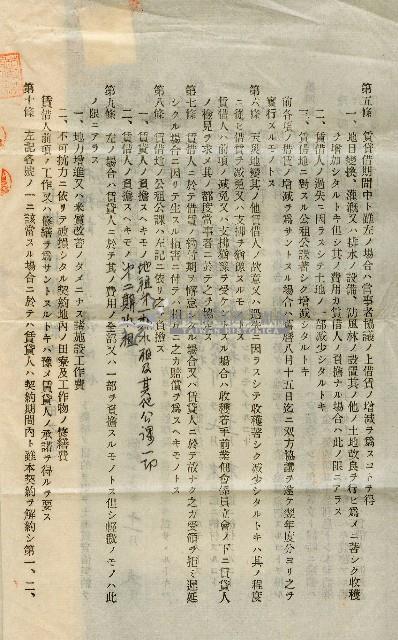 第五條 賃貸借期間中ト雖左ノ場合ハ當事者協議ノ上借賃ノ增減ヲ爲スコトヲ得
一、地目變換、灌漑又ハ排水ノ設備、防風林ノ設置其ノ他ノ土地改良ヲ行ヒ爲メニ著シク收穫
ヲ增加シタルトキ但シ其ノ費用カ賃借人ノ負擔ナル場合ハ此ノ限ニアラス
二、賃借人ノ過失ニ因ラスシテ土地ノ一部減少シタルトキ
三、賃借地ニ對スル公租公課著シク增減シタルトキ
前各項ノ借賃ノ增減ヲ爲サントスル場合ハ舊曆八月十五日迄ニ双方協議ヲ遂ケ翌年度分ヨリ之ヲ
實行スルモノトス
第六條 天災地變其ノ他賃借人ノ故意又ハ過失ニ因ラスシテ收穫著シク減少シタルトキハ其ノ程度
ニ從ヒ借賃ヲ減免又ハ支拂ヲ猶豫スルモノトス
賃借人ハ前項ノ減免又ハ支拂猶豫ヲ受ケントスル場合ハ收穫着手前業佃會係員立會ノ下ニ賃貸人
ノ檢見ヲ求メ其ノ都度當事者ニ於テ之ヲ協定ス
第七條 賃借人ニ於テ借賃ノ納付期ヲ懈怠シタル場合又ハ賃貸人ニ於テ故ナク之カ受領ヲ拒ミ遲延
シタル場合ニ因リテ生スル損害ニ付テハ相互ニ之カ賠償ヲ爲スヘキモノトス
第八條 賃借地ノ公租公課ハ左記ニ依リ之ヲ負擔ス
一、賃貸人ノ負擔スヘキモノ 地租 水租及其他公課一切
二、賃借人ノ負擔スヘキモノ 第二期水租
第九條 左ノ場合ハ賃貸人ニ於テ其ノ費用ノ全部又ハ一部ヲ負擔スルモノトス但シ輕微ノモノハ此
ノ限ニアラス
一、地力增進又ハ米質改善ノタメニナス諸施設工作費
二、不可抗力ニ依リテ破損シタル契約地內ノ田寮及工作物ノ修繕費
賃借人前項ノ工作又ハ修繕ヲ爲サントスルトキハ豫メ賃貸人ノ承諾ヲ得ルヲ要ス
第十條 左記各號ノ一ニ該當スル場合ニ於テハ賃貸人ハ契約期間內ト雖本契約ヲ解約シ第一、二、